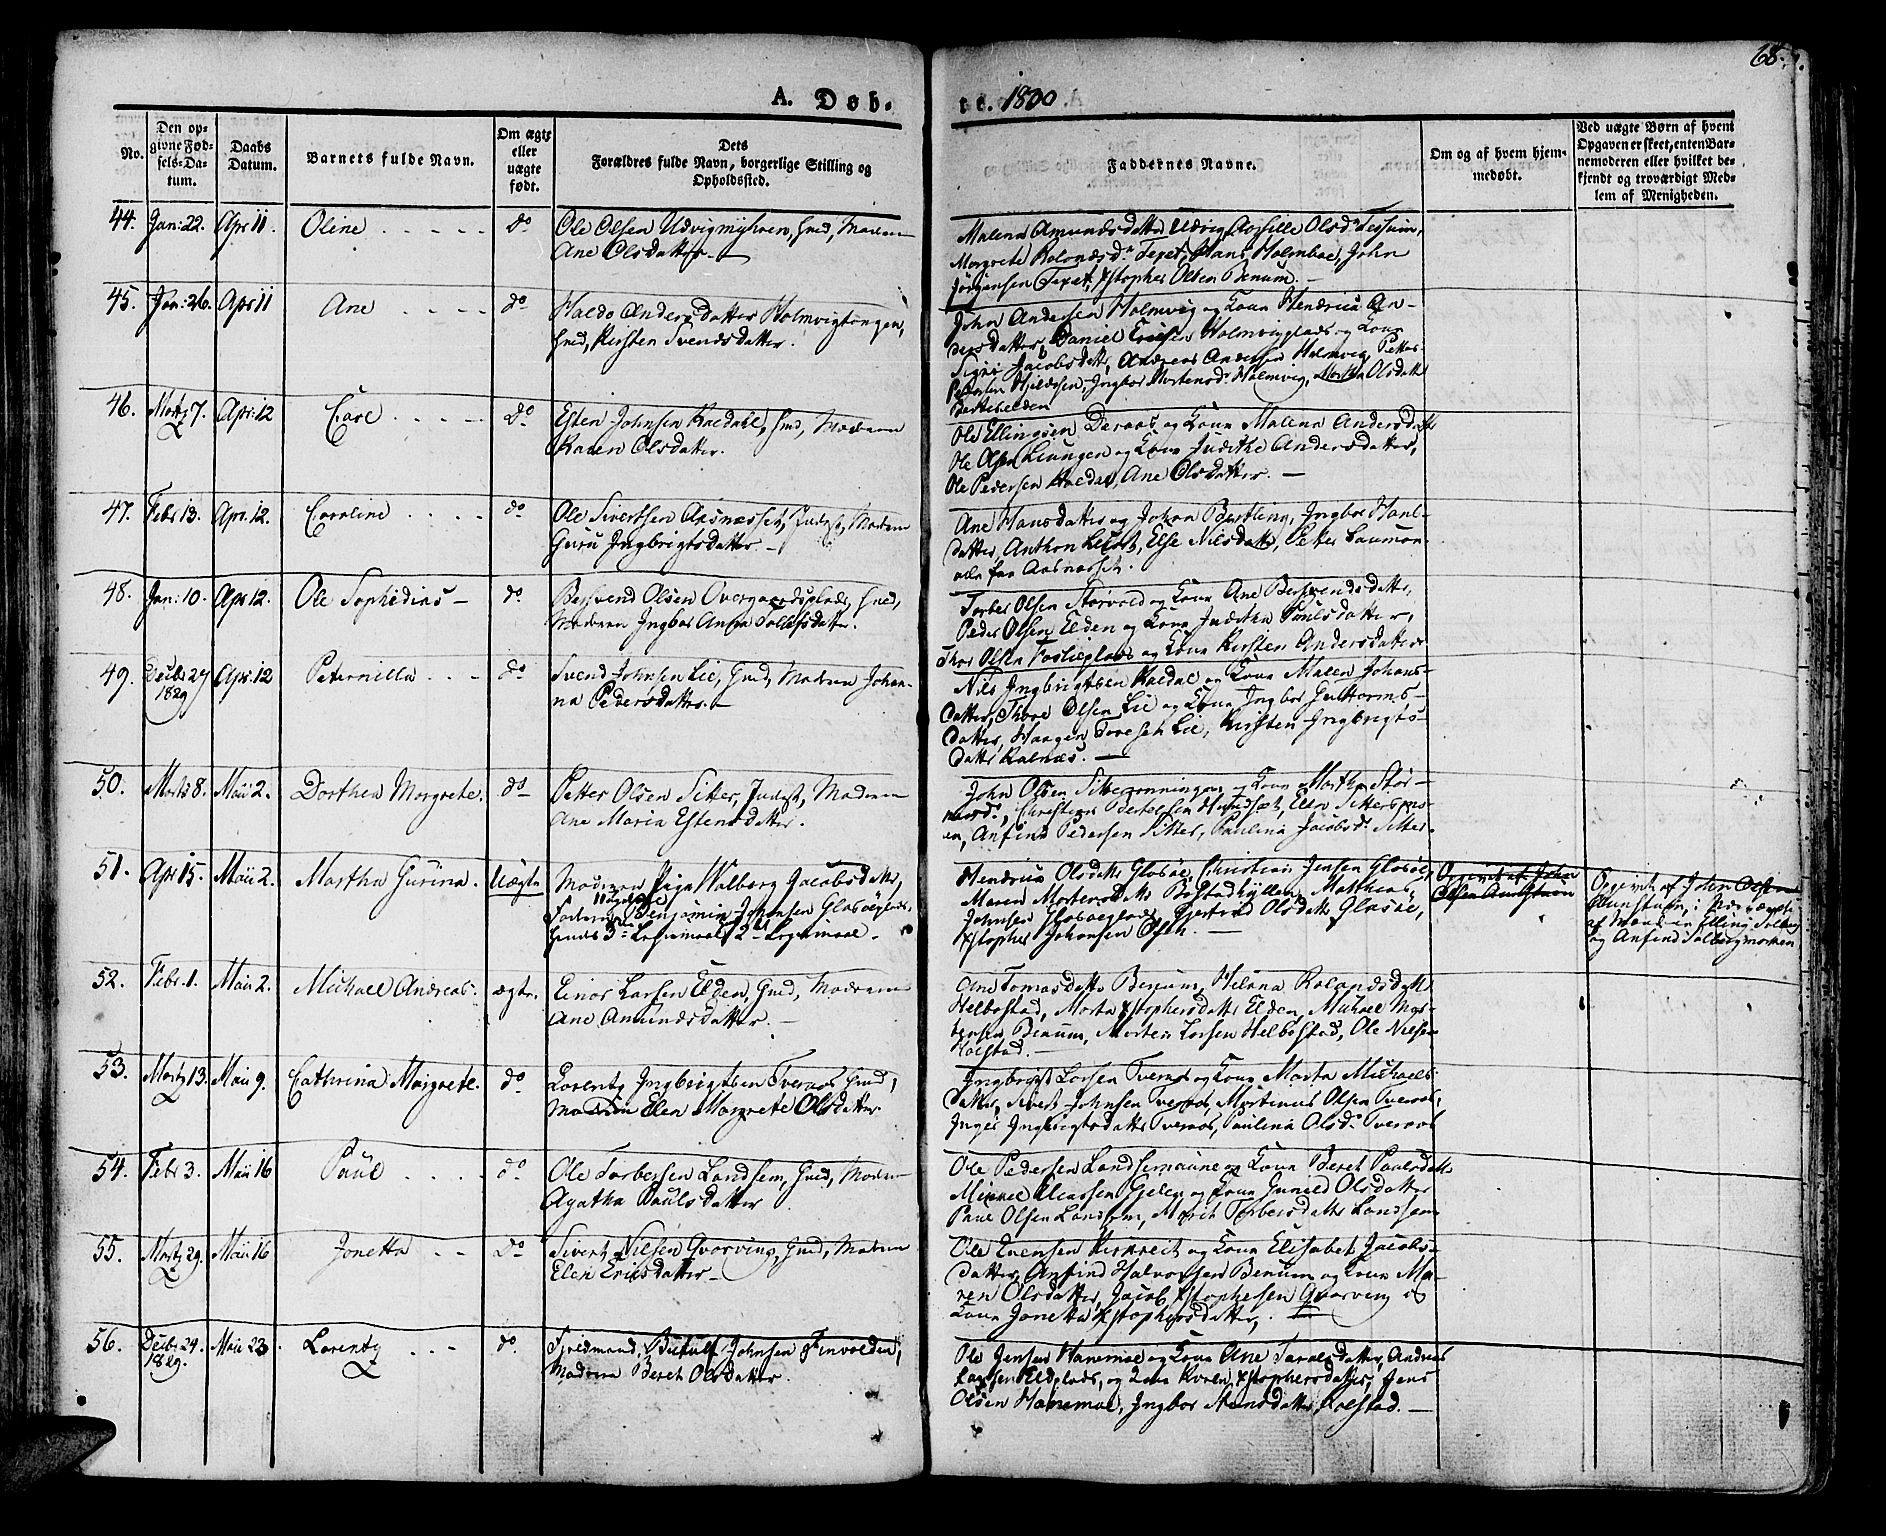 68.
A. Døb-
te. 1830
No.
Den op-
givne Fød-
sels-Da-
tum.
Daabs
Datum.
Barnets fulde Navn.
Om ægte
eller
uægte
født.
Dets
Forældres fulde Navn, borgerlige Stilling og
Opholdssted.
Faddernes Navne.
Om og af hvem hjem-
medøbt.
Ved uægte Børn af hvem
Opgaven er skeet, enten Bar-
nemoderen eller hvilket be-
kjendt og troværdigt Med-
lem af Menigheden.
44. Jan: 22. Apr 11. Oline do
Ole Olsen Udvigmyhren, Gmd, Moderen
Ane Olsdatter.
Malena Amundsdatter Udvig, Olsd.
Hans Holmboe, John
Jørgensen Xstopher Olsen Benum.
45. Jan: 26. Apr 11 Ane do
Andersdatter Holmvigtangen,
Gmd, Kirsten Svendsdatter.
John Andersen Holmvig og Kone Hendrica An-
dersdatter, Daniel Holmvigplads og Kone
Jacobsdatter, Andreas Andersen Holmvig, Petter
Ingbor Mortensd. Holmvig, Martha Olsdatter
46. Martz 7. Apr: 12 Carl do
Esten Johnsen Kaldahl, Gmd, Moderen
Karen Olsdatter.
Ole Ellingsen Deraas og Kone Malena Andersdatter
Ole Olsen Leungen og Kone Judithe Andersdatter,
Ole Pedersen Kaldal, Ane Olsdatter.
47. Febr 13. Apr. 12. Caroline do
Ole Sivertsen Aasnæsset, Indst, Moderen
Guru Ingbrigtsdatter
Ane Hansdatter og Johan Bertling, Ingbor
datter, Anthon Else Nilsdatter, Petter
alle fra Aasnæsset.
48. Jan: 10. Apr 12. Ole Sophedius do
Bersvend Olsen Overgaardsplads, Gmd,
Moderen Ingbor Anna Tollefsdatter.
Torber Olsen Storvold og Kone Ane Bersvendsdatter,
Peder Olsen Elden og Kone Judithe Paulsdatter,
Thor Olsen Foslieplads og Kone Kirsten Andersdatter
49. Decbr 27 1829 Apr. 12 Peternilla do
Svend Johnsen Lie, Gmd, Moderen Johan-
na Pedersdatter.
Nils Ingbrigtsen Kaldal og Kone Malen Johans-
datter, Thore Olsen Lie og Kone Ingbor Guttorms-
datter, Haagen Toreset Lie, Kirsten Ingbrigts-
datter Kalnæs.
50. Martz 8. Maii 2. Dorthea Margrete. do
Petter Olsen Sitter, Indst, Moderen
Ane Maria Estensdatter.
John Olsen Sitterrønningen og Kone Martha
Christian Bertelsen Hundsæt,
Anfind Pedersen Sitter, Paulina Jacobsd. Sitter
51. Apr 15. Maii 2. Martha Gurina. Uægte
Moderen Pige Walborg Jacobsdatter,
Faderen Ungkarl Benjamin Johansen Glasøeplads,
hendes 3die Leiermaal, 2det Leiermaal.
Hendrica Olsdatter Glasøe, Christian Jensen Glasøe,
Maren Mortensdatter Bolstadhyllen, Matthias
Johnsen Glasøeplads, Gjertrud Olsdatter Glasøe,
Xstopher Johansen Olsen.
Opgivet af John
Olsen Aunstuen
Opgivet af John Olsen
Aunstuen,
af Manden Elling Solberg
og Anfind Solbergmoen
52. Febr. 1. Maii 2. Michael Andreas. ægte.
Einar Larsen Elden, Gmd, Moderen
Ane Amundsdatter.
Ane Tomasdatter Benum, Helena Rolandsdatter
Helbostad, Marta Xstophersdatter Elden, Michael Mor-
tensen Benum, Morten Larsen Helbostad, Ole Nilsen
Holstad.
53. Martz 13. Maii 9. Cathrina Margrete. do
Lorentz Ingbrigtsen Tveraas, Gmd,
Moderen Elen Margrete Olsdatter.
Ingbrigt Larsen Tveraas og Kone Marta Michaels-
datter, Sivert Johnsen Tveraas, Martinus Olsen Tveraas,
Inger Ingbrigtsdatter Tveraas, Paulina Olsd. Tveraas
54. Febr 3. Maii 16 Paul do
Ole Torbersen Landsem, Gmd, Moderen
Agatha Paulsdatter
Ole Pedersen Landsemaune og Kone Beret Paulsdatter
Michel og Kone Gunild Olsdatter
Paul Olsen Landsem, Marit Torbersdatter Landsem
55. Martz 29. Maii 16 Jonetta do
Sivert Nilsen Qvarving, Gmd, Moderen
Elen Ericsdatter
Ole Evensen Kirkreit og Kone Elisabet Jacobs-
datter, Anfind Halvorsen Benum og Kone Ma-
ren Olsdatter, Jacob Xstophersen Qvarving og
Kone Jonetta Xstophersdatter,
56. Decbr 24. 1829. Maii 23 Lorentz do
Johnsen Finvolden,
Moderen Beret Olsdatter.
Ole Jensen Hanemoe og Kone Ane Taraldsdatter, Andreas
Larsen Eldplads, og Kone Karen Xstophersdatter, Jens
Olsen Hanemoe, Ingbor Arnsdatter, Kolstad.